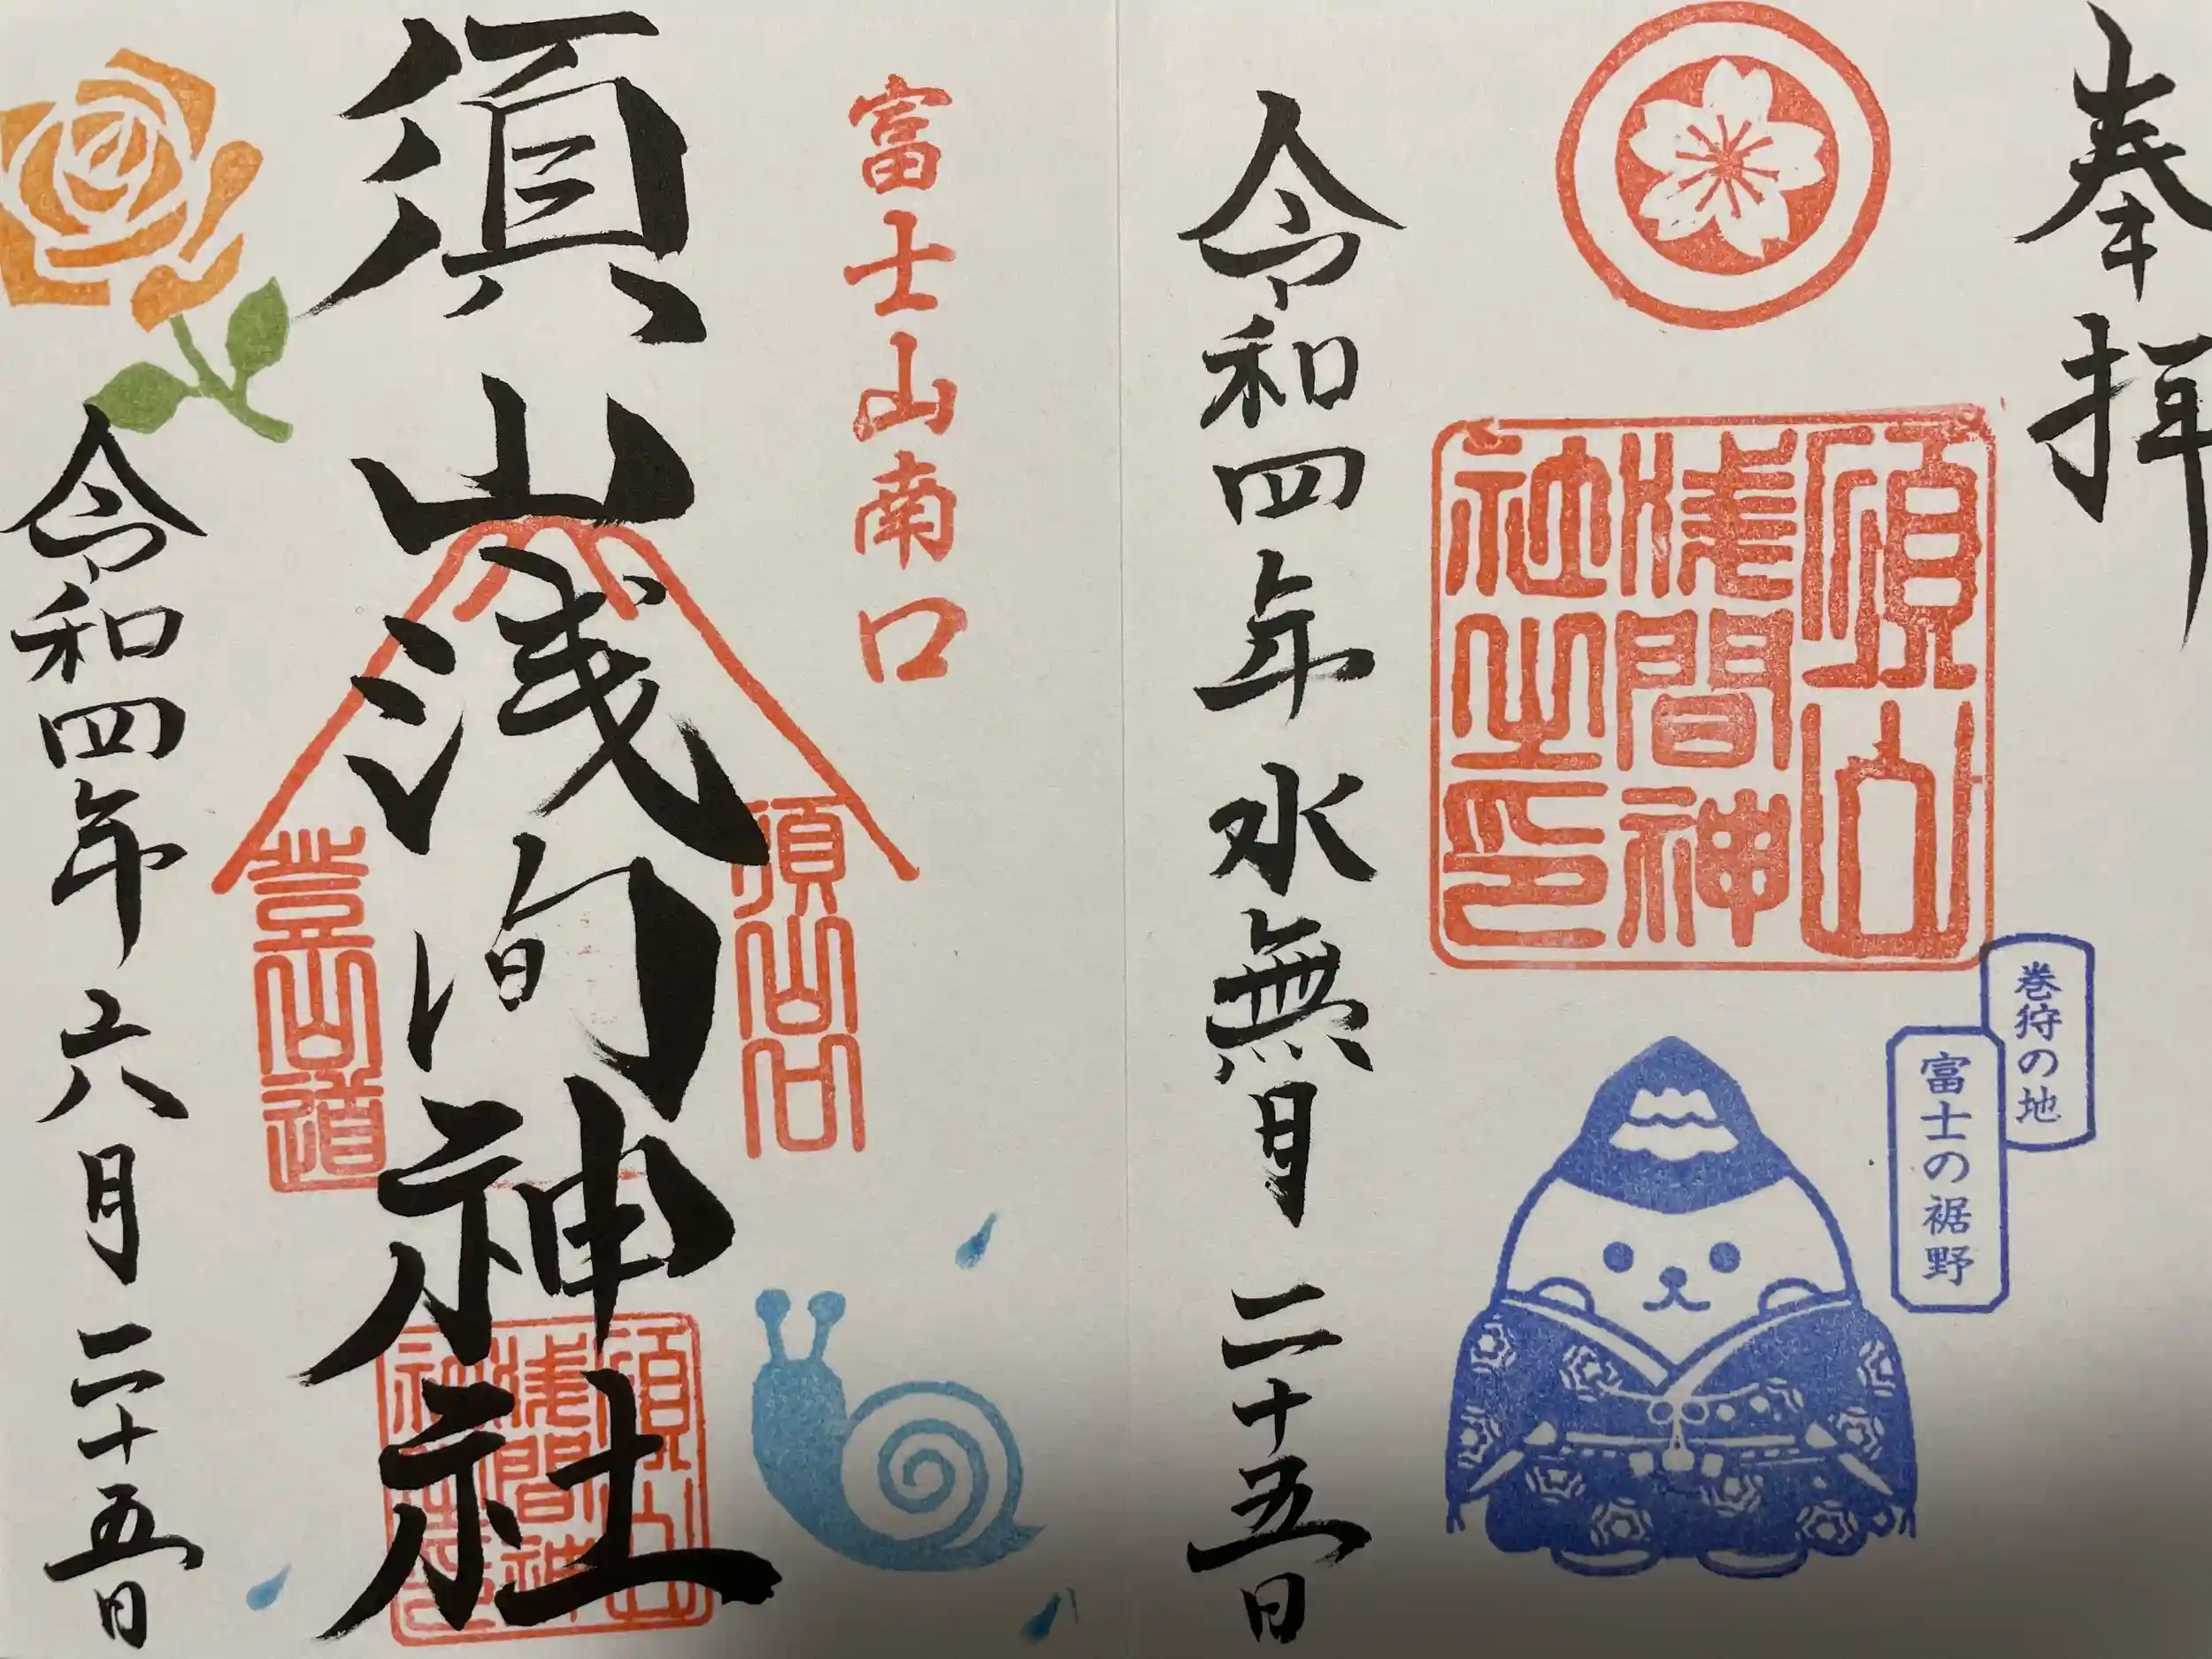 奉拝
須山
浅間神
社之印
巻狩の地
富士の裾野
令和四年水無月二十五日
富士山南口
須山浅间神社
須山口
登山道
須山
浅間神
社之印
令和四年六月二十五日